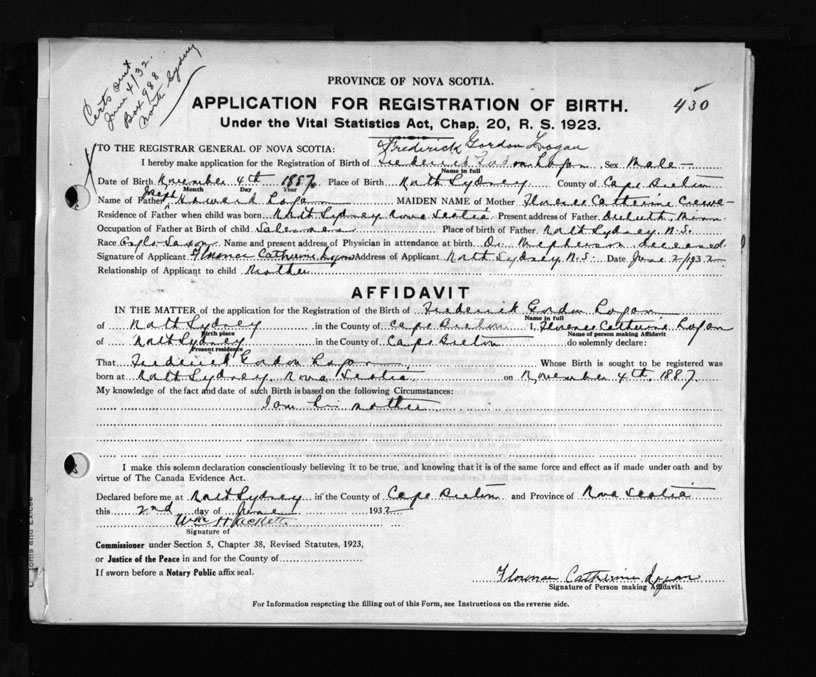 Certs out
June 4/32.
Box 988
North Sydney
PROVINCE OF NOVA SCOTIA.
APPLICATION FOR REGISTRATION OF BIRTH.
430
Under the Vital Statistics Act, Chap. 20, R. S. 1923.
Frederick Gordon Logan
TO THE REGISTRAR GENERAL OF NOVA SCOTIA:
I hereby make application for the Registration of Birth of Frederick Gordon Logan Sex Male-
Name in full
Date of Birth November 4th 1887 Place of Birth North Sydney County of Cape Breton
Month Day Year
Name of Father Joseph Howard Logan MAIDEN NAME of Mother Florence Catherine
Residence of Father when child was born North Sydney Nova Scotia Present address of Father
Occupation of Father at Birth of child Salesman Place of birth of Father North Sydney N.S.
Race Anglo-Saxon Name and present address of Physician in attendance at birth Dr. McPherson deceased
Signature of Applicant Florence Catherine Logan Address of Applicant North Sydney N.S. Date June 2/1932
Relationship of Applicant to child Mother
AFFIDAVIT
IN THE MATTER of the application for the Registration of the Birth of Frederick Gordon Logan
Name in full
of North Sydney in the County of Cape Breton I, Florence Catherine Logan
Birth place Name of person making Affidavit
of North Sydney in the County of Cape Breton do solemnly declare:
Present residence
That Frederick Gordon Logan Whose Birth is sought to be registered was
born at North Sydney, Nova Scotia on November 4th, 1887
My knowledge of the fact and date of such Birth is based on the following Circumstances:
I am his mother
I make this solemn declaration conscientiously believing it to be true, and knowing that it is of the same force and effect as if made under oath and by
virtue of The Canada Evidence Act.
Declared before me at North Sydney in the County of Cape Breton and Province of Nova Scotia
this 2nd day of June 1932
Wm H Hackett
Signature of
Commissioner under Section 5, Chapter 38, Revised Statutes, 1923,
or Justice of the Peace in and for the County of
If sworn before a Notary Public affix seal.
Florence Catherine Logan
Signature of Person making Affidavit.
For Information respecting the filling out of this Form, see Instructions on the reverse side.